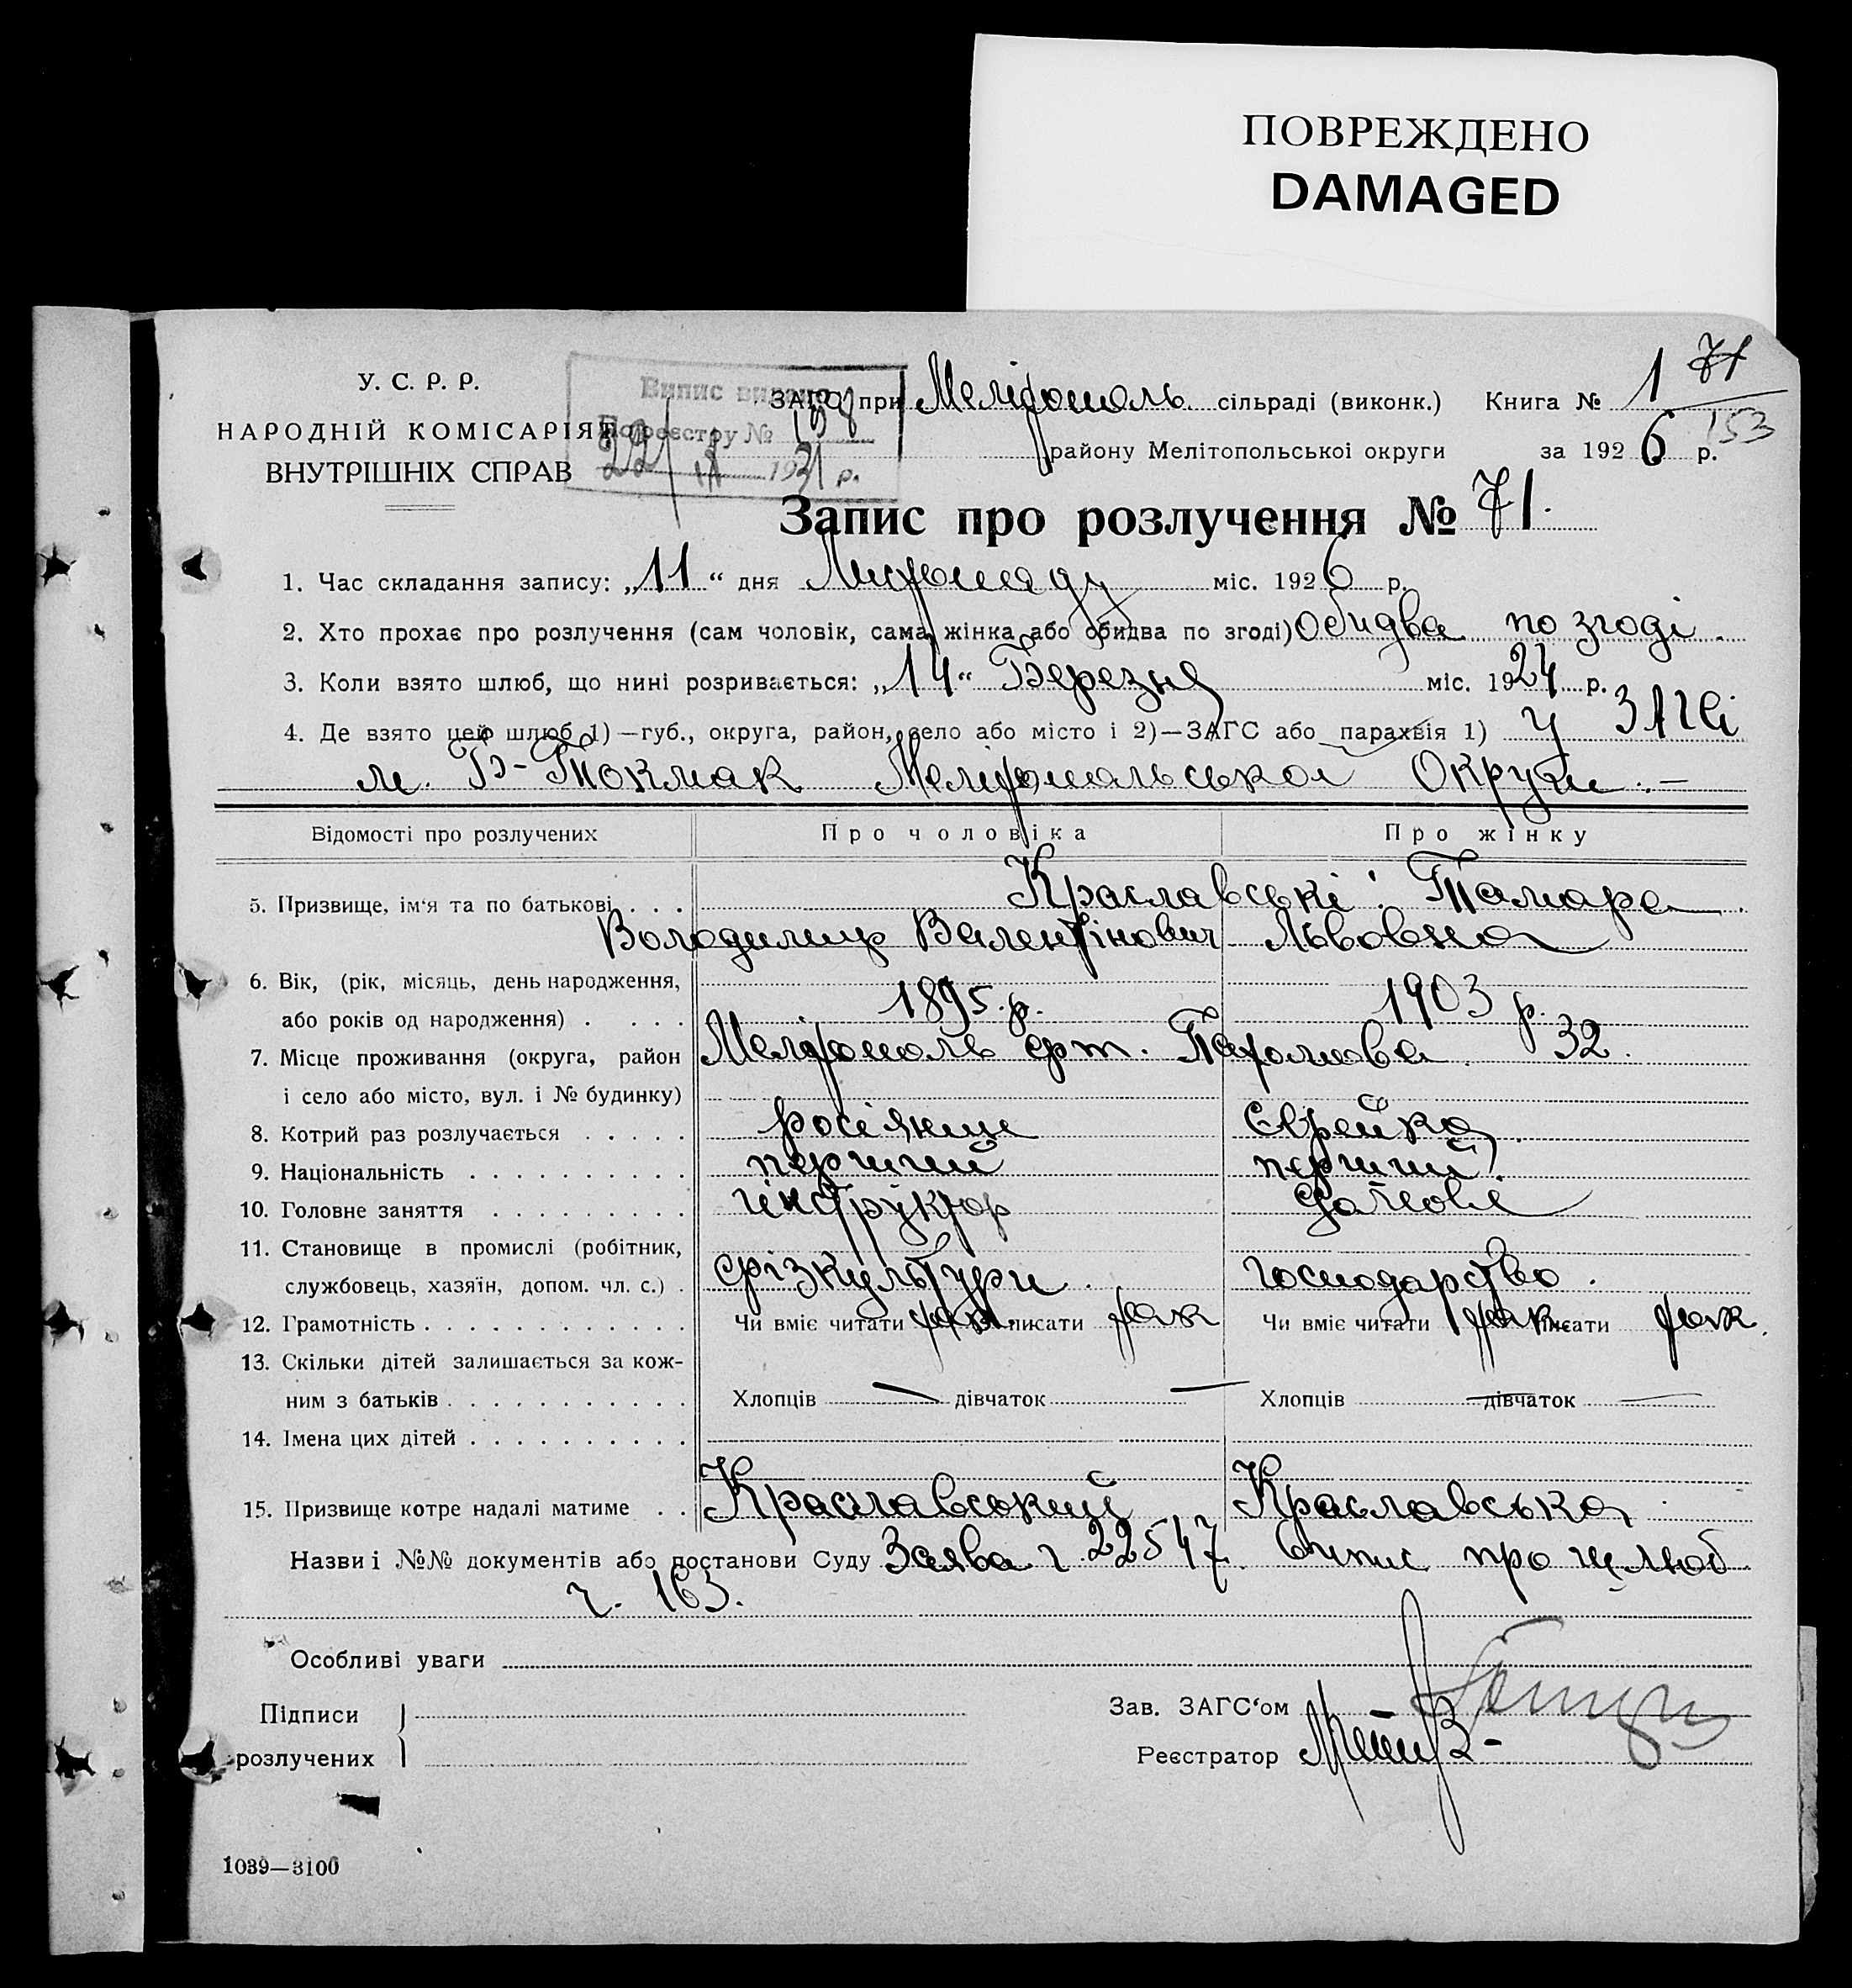 ПОВРЕЖДЕНО
DAMAGED
У. С. Р. Р.
НАРОДНІЙ КОМІСАРІЯТ
ВНУТРІШНІХ СПРАВ
Випис видано
По реєстру № 188
22/ІХ 1931 р.
ЗАГС при Мелітополь сільраді (виконк.) Книга № 1 71
153
району Мелітопольської округи за 1926 р.
Запис про розлучення № 71.
1. Час складання запису: „11“ дня Листопаду міс. 1926 р.
2. Хто прохає про розлучення (сам чоловік, сама жінка або обидва по згоді) Обидва по згоді.
3. Коли взято шлюб, що нині розривається: „14“ Березня міс. 1924 р.
4. Де взято цей шлюб 1)—губ., округа, район, село або місто і 2)—ЗАГС або парахвія 1) У ЗАГСі
м. В-Токмак Мелітопольської Округи. —
Відомості про розлучених Про чоловіка Про жінку
5. Призвище, ім‘я та по батькові . . . Краславські: Тамара
Володимир Валентінович Львовна
6. Вік, (рік, місяць, день народження, 1895. р. 1903 р.
або років од народження) . . . .
7. Місце проживання (округа, район Мелітополь 32.
і село або місто, вул. і № будинку)
8. Котрий раз розлучається . . . . . росіянин Єврейка
9. Національність . . . . . . . . . . перший перший
10. Головне заняття . . . . . . . . . інструктор домове
11. Становище в промислі (робітник,
службовець, хазяїн, допом. чл. с.) . фізкультури господарство.
12. Грамотність . . . . . . . . . . . . Чи вміє читати так писати так Чи вміє читати так писати так
13. Скільки дітей залишається за кож-
ним з батьків . . . . . . . . . . . Хлопців — дівчаток — Хлопців — дівчаток —
14. Імена цих дітей . . . . . . . . . .
15. Призвище котре надалі матиме . . Краславський Краславська
Назви і №№ документів або постанови Суду Заява ч 22547. Випис про шлюб
ч. 163.
Особливі уваги
Підписи Зав. ЗАГС‘ом
розлучених Реєстратор
1039—3100